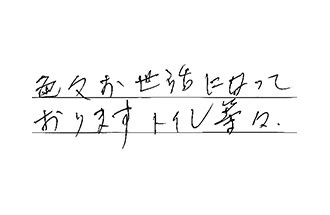 色々お世話になって
おります トイレ等々.